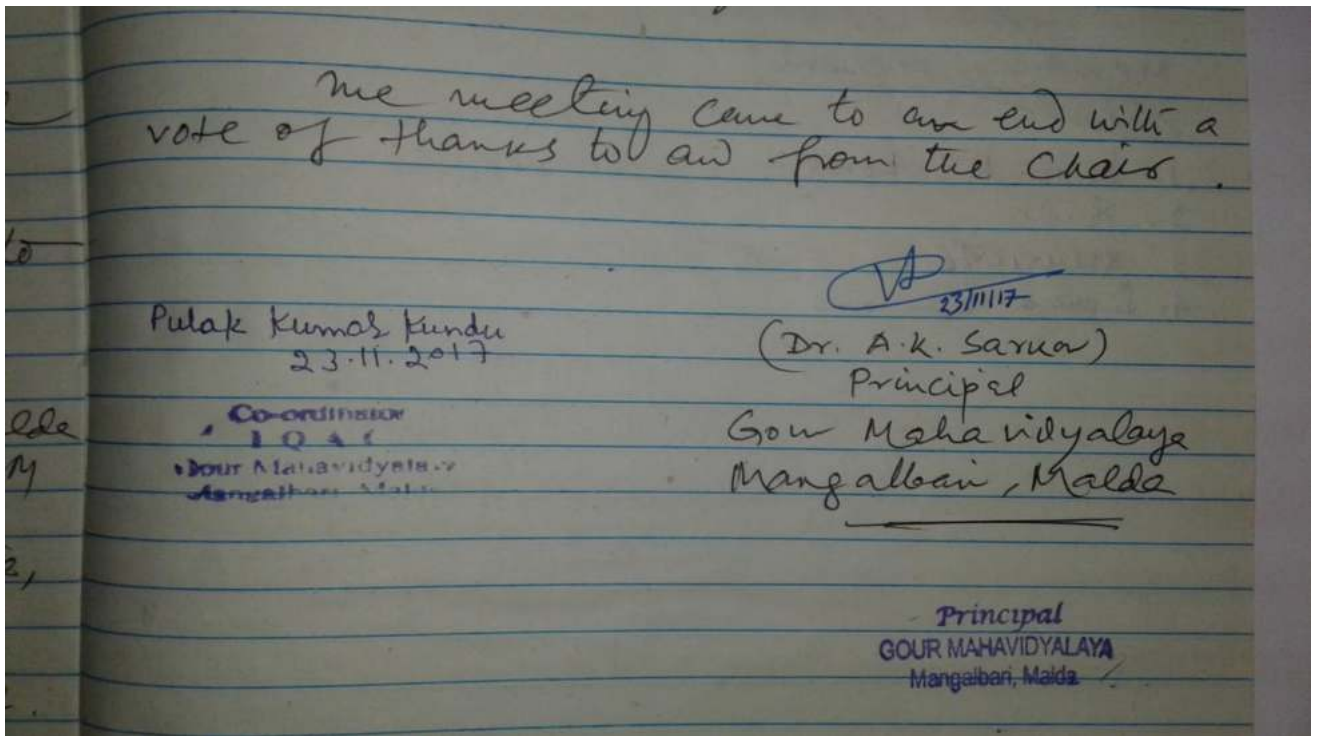 The meeting came to an end with a
vote of thanks to all from the Chair.
Pulak Kumar Kundu
23.11.2017
Co-ordinator
IQAC
Gour Mahavidyalaya
Mangalbari, Malda
23/11/17
(Dr. A.K. Sarkar)
Principal
Gour Mahavidyalaya
Mangalbari, Malda
Principal
GOUR MAHAVIDYALAYA
Mangalbari, Malda
lda
M